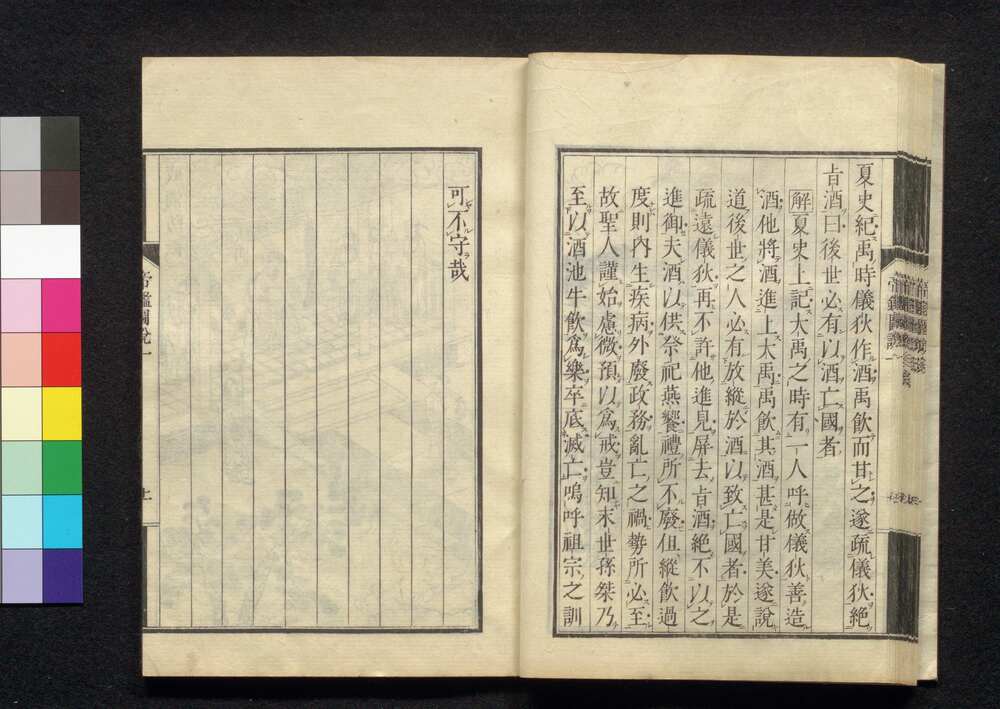 夏史紀禹時儀狄作酒禹飲而甘之遂疏儀狄絶
旨酒曰後世必有以酒亡國者
解夏史上記大禹之時有一人呼做儀狄善造
酒他將酒進上大禹禹飲其酒甚是甘美遂說
道後世之人必有放縱於酒以致亡國者於是
疏遠儀狄再不許他進見屏去旨酒絶不以之
進御夫酒以供祭祀燕饗禮所不廢但縱飲過
度則內生疾病外廢政務亂亡之禍勢所必至
故聖人謹始慮微預以為戒豈知末世孫桀乃
至以酒池牛飲爲樂卒底滅亡嗚呼祖宗之訓
可不守哉
帝鑑圖說一